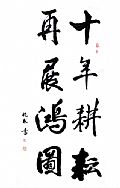 十年耕耘
再展鴻圖